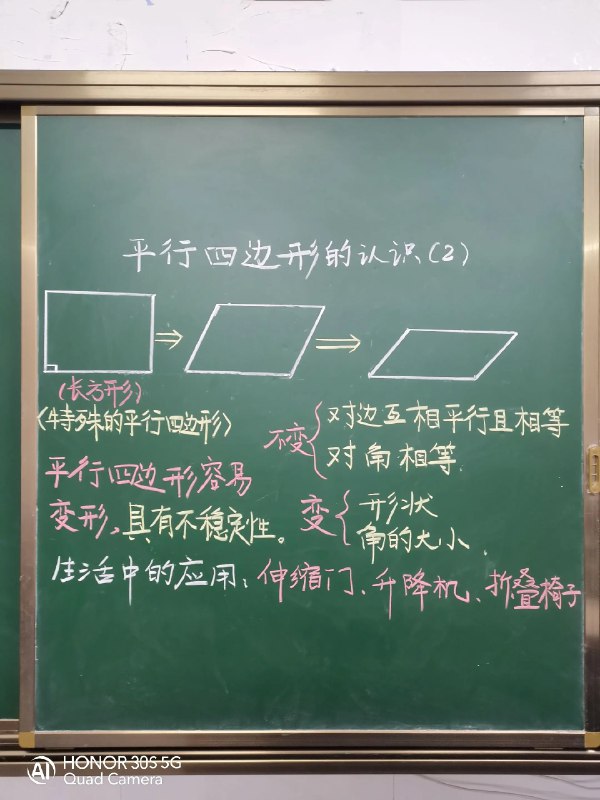 平行四边形的认识(2)
(长方形)
(特殊的平行四边形)
不变
对边互相平行且相等
对角相等.
平行四边形容易
变形,具有不稳定性。
变
形状
角的大小.
生活中的应用:伸缩门、升降机、折叠椅子
AI HONOR 30S 5G
Quad Camera